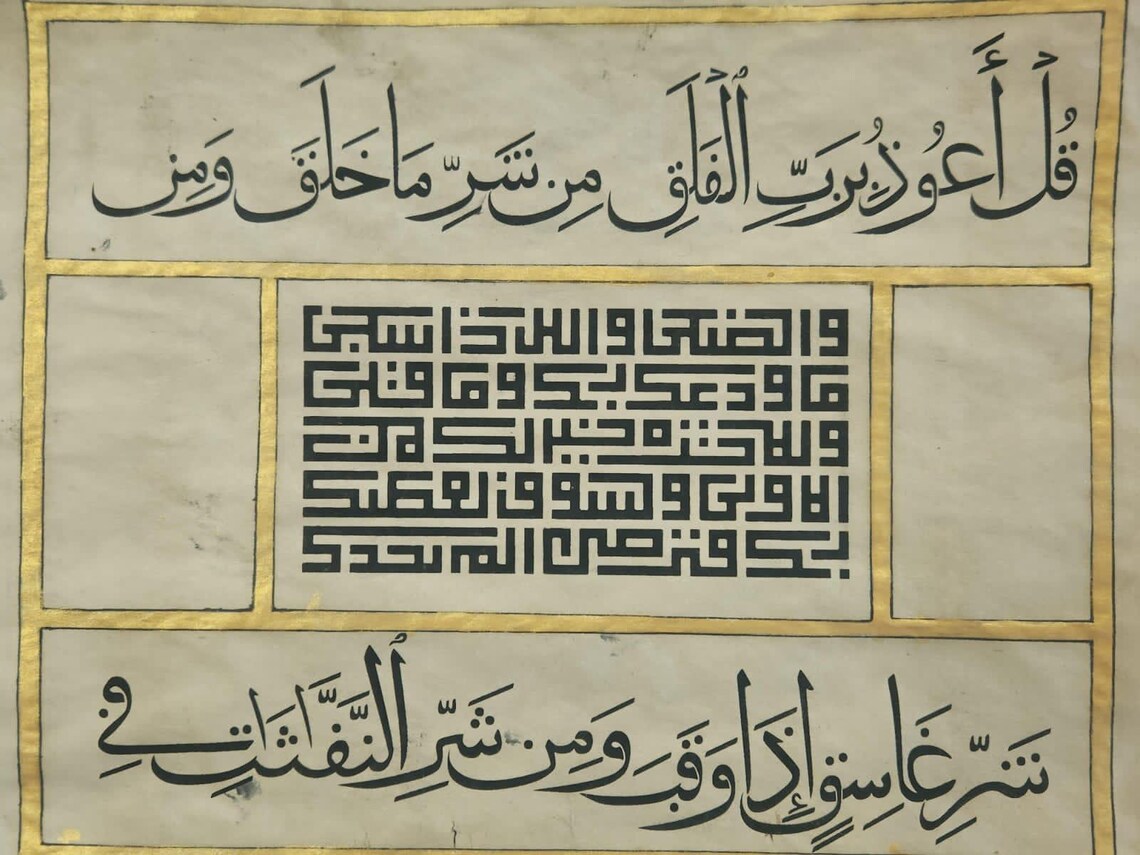 قُلْ أَعُوذُ بِرَبِّ ٱلْفَلَقِ مِن شَرِّ مَا خَلَقَ وَمِن
والضحى والليل اذا سجى
ما ودعك ربك وما قلى
وللاخرة خير لك من
الاولى ولسوف يعطيك
ربك فترضى الم يجدك
شَرِّ غَاسِقٍ إِذَا وَقَبَ وَمِن شَرِّ ٱلنَّفَّٰثَٰتِ فِي